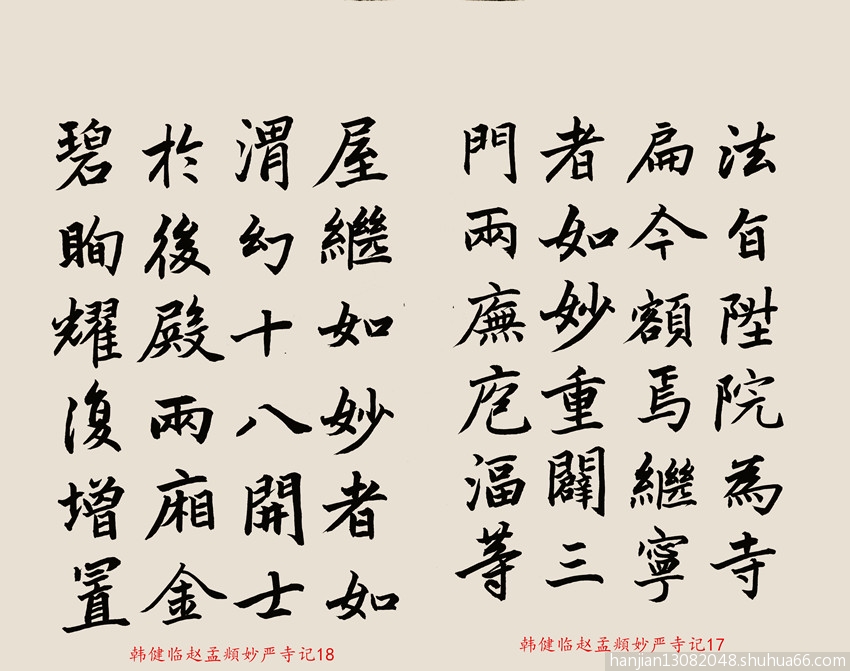 法旨陞院為寺
扁今額焉繼寧
者如妙重闢三
門兩廡庖湢等
韩健临赵孟頫妙严寺记17
屋繼如妙者如
渭幻十八開士
於後殿兩廂金
碧眴耀復增置
韩健临赵孟頫妙严寺记18
hanjian13082048.shuhua66.com